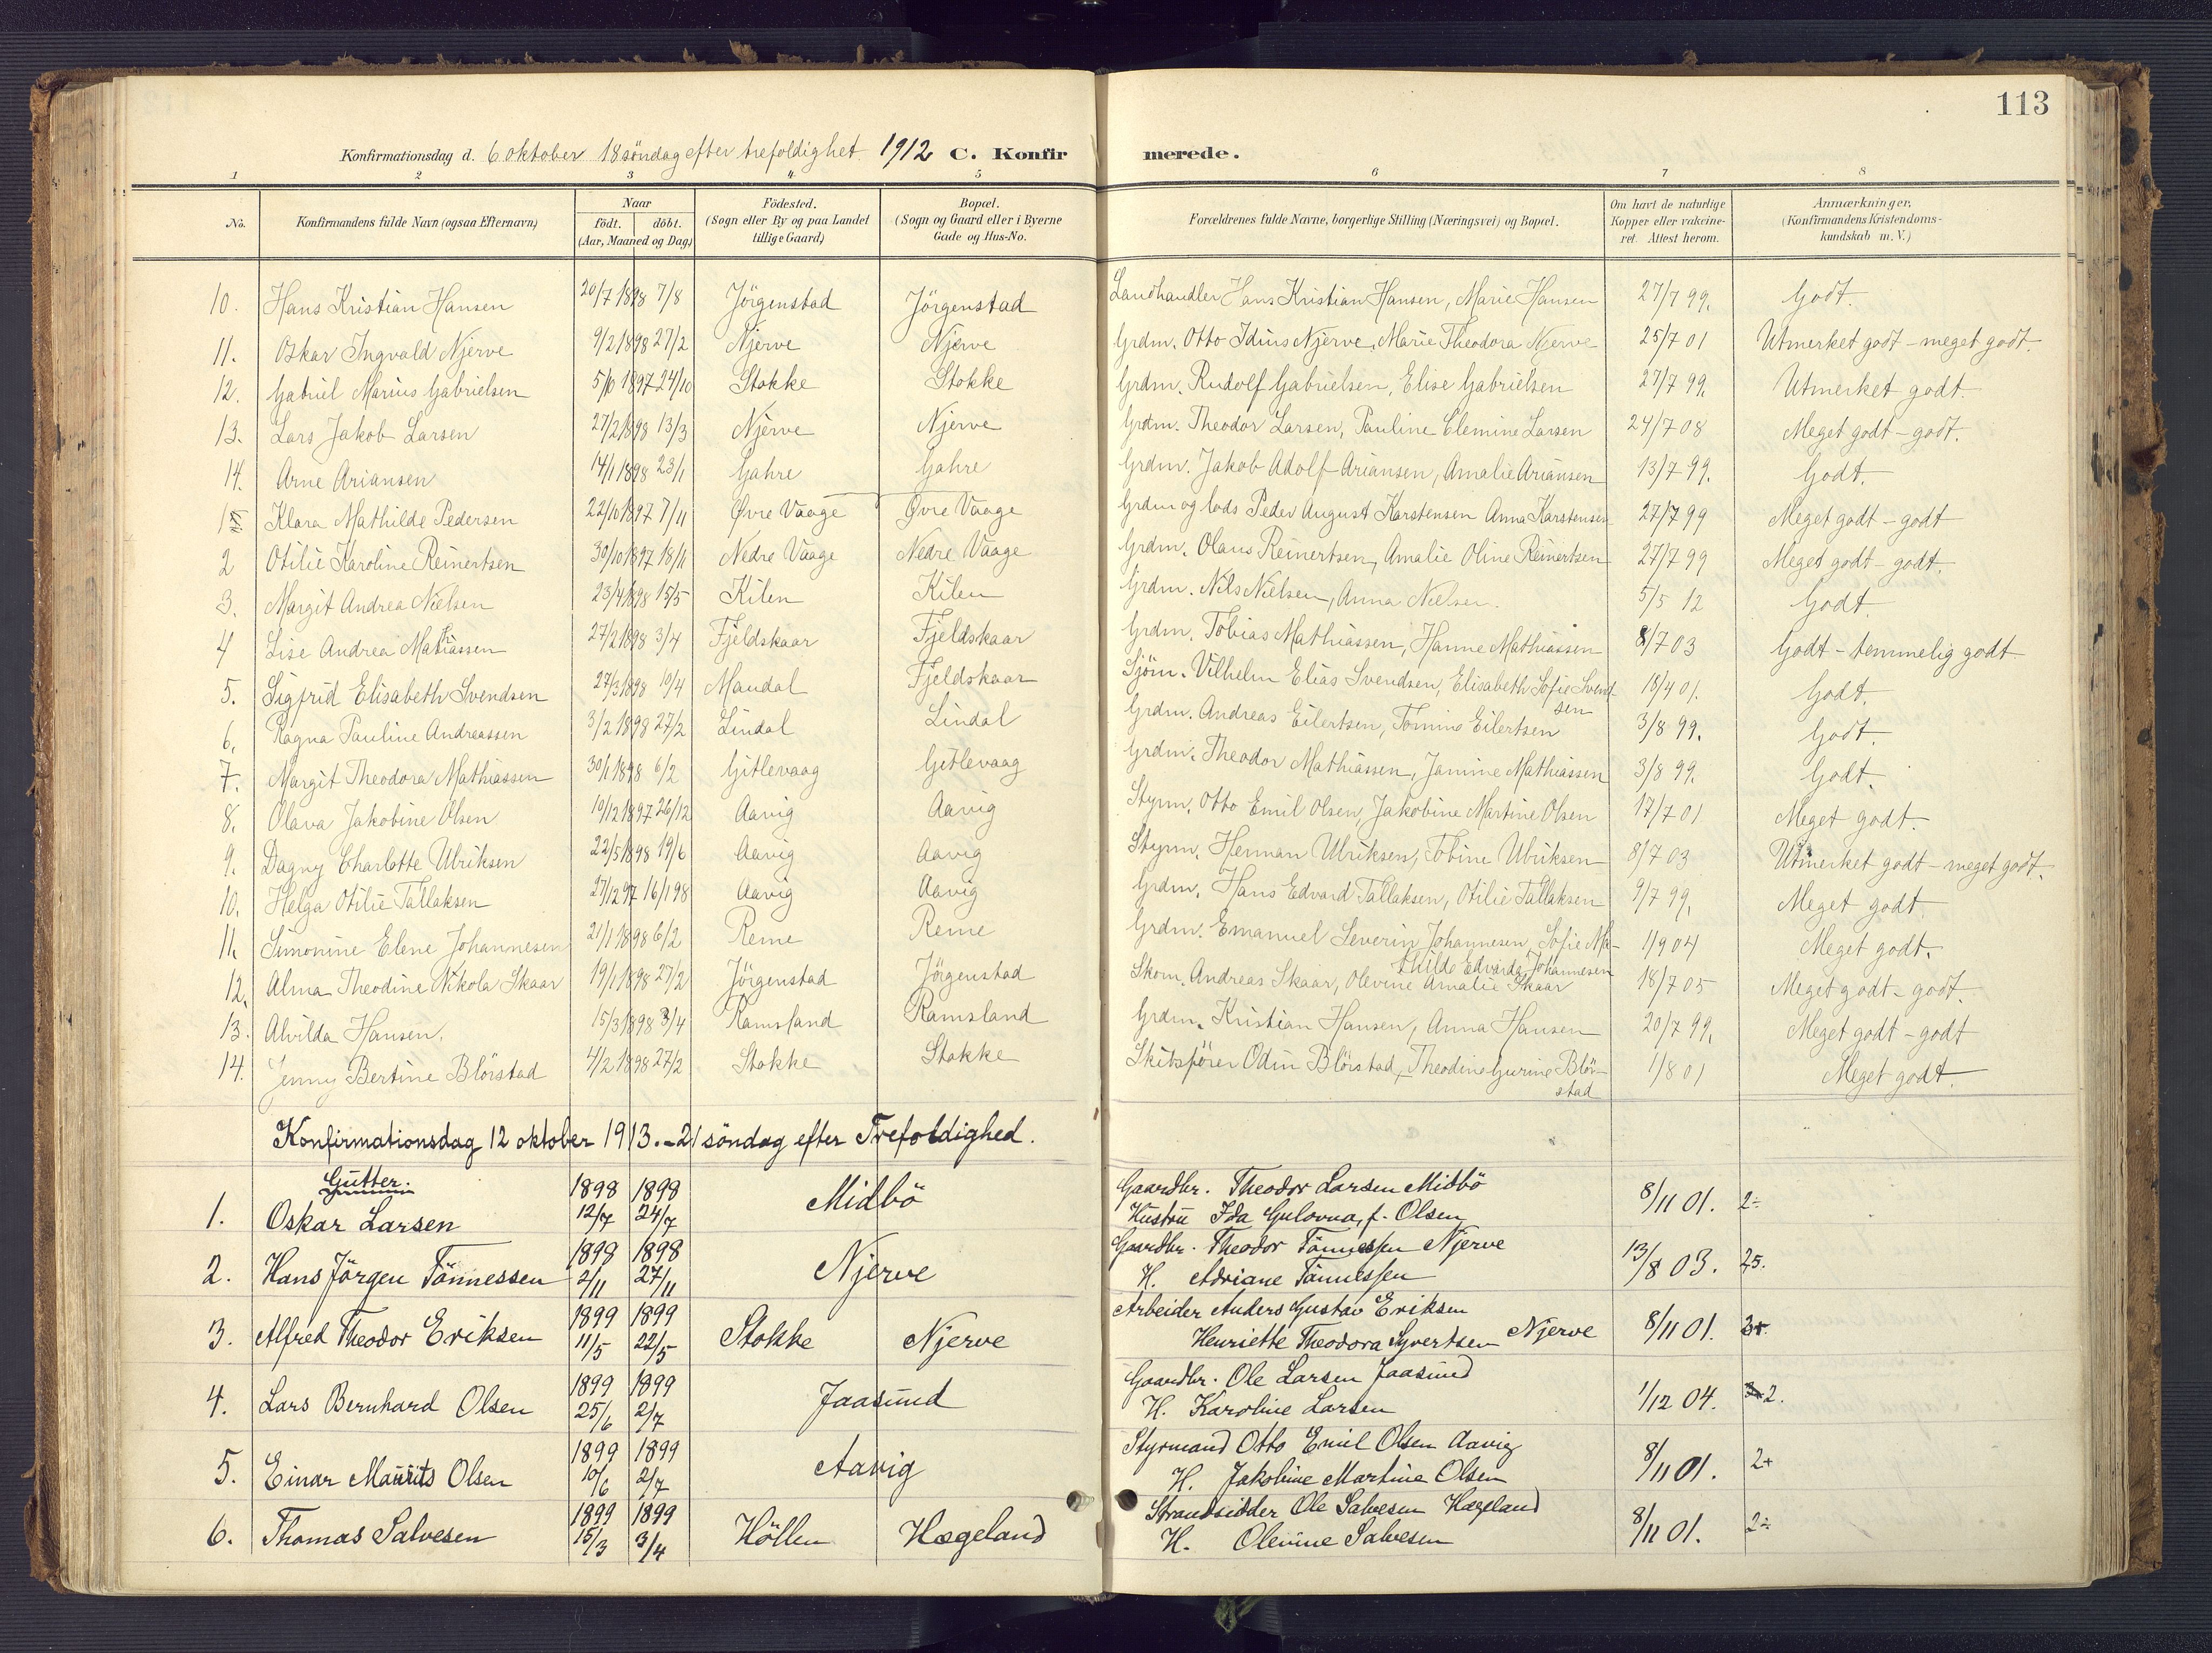 113
Konfirmationsdag d. 6 oktober 18 söndag efter trefoldighet 1912 C. Konfirmerede.
1 2 3 4 5 6 7 8
No. Konfirmandens fulde Navn (ogsaa Efternavn) Naar födt. döbt. (Aar, Maaned og Dag) Födested. (Sogn eller By og paa Landet tillige Gaard) Bopæl. (Sogn og Gaard eller i Byerne Gade og Hus-No. Forældrenes fulde Navne, borgerlige Stilling (Næringsvei) og Bopæl. Om havt de naturlige Kopper eller vakcineret. Attest herom. Anmærkninger. (Konfirmandens Kristendomskundskab m. V.)
10. Hans Kristian Hansen 20/7 1898 7/8 Jörgenstad Jörgenstad Landhandler Hans Kristian Hansen, Marie Hansen 27/7 99. Godt.
11. Oskar Ingvald Njerve 9/2 1898 27/2 Njerve Njerve Grdm. Otto Idius Njerve, Marie Theodora Njerve 25/7 01 Utmerket godt - meget godt.
12. Gabriel Marius Gabrielsen 5/10 1897 24/10 Stokke Stokke Grdm. Rudolf Gabrielsen, Elise Gabrielsen 27/7 99. Utmerket godt.
13. Lars Jakob Larsen 27/2 1898 13/3 Njerve Njerve Grdm. Theodor Larsen, Pauline Clemine Larsen 24/7 08 Meget godt - godt.
14. Arne Ariansen 14/1 1898 23/1 Gahre Gahre Grdm. Jakob Adolf Ariansen, Amalie Ariansen 13/7 99. Godt.
1 Klara Mathilde Pedersen 22/10 1897 7/11 Øvre Vaage Øvre Vaage Grdm og lods Peder August Karstensen Anna Karstensen 27/7 99 Meget godt - godt
2 Otilie Karoline Reinertsen 30/10 1897 18/11 Nedre Vaage Nedre Vaage Grdm. Olaus Reinertsen, Amalie Oline Reinertsen 27/7 99 Meget godt - godt.
3. Margit Andrea Nielsen 23/4 1898 15/5 Kilen Kilen Grdm. Nils Nielsen, Anna Nielsen. 5/5 12 Godt.
4 Lise Andrea Mathiassen 27/2 1898 3/4 Fjeldskaar Fjeldskaar Grdm. Tobias Mathiassen, Hanne Mathiassen 8/7 03 Godt - temmelig godt
5. Sigfrid Elisabeth Svendsen 27/3 1898 10/4 Mandal Fjeldskaar Sjöm. Vilhelm Elias Svendsen, Elisabeth Sofie Svend
sen 18/4 01. Godt.
6. Ragna Pauline Andreassen 3/2 1898 27/2 Lindal Lindal Grdm. Andreas Eilertsen, Tomine Eilertsen 3/8 99. Godt.
7. Margit Theodora Mathiassen 30/1 1898 6/2 Gitlevaag Gitlevaag Grdm. Theodor Mathiassen, Janine Mathiassen 3/8 99. Godt.
8. Olava Jakobine Olsen 10/12 1897 26/12 Aavig Aavig Styrm. Otto Emil Olsen, Jakobine Martine Olsen 17/7 01 Meget godt.
9. Dagny Charlotte Ulriksen 22/5 1898 19/6 Aavig Aavig Styrm. Herman Ulriksen, Tobine Ulriksen 8/7 03 Utmerket godt - meget godt.
10. Helga Otilie Tallaksen 27/12 97 16/1 98 Aavig Aavig Grdm. Hans Edvard Tallaksen, Otilie Tallaksen 9/7 99. Meget godt
11. Simonine Elene Johannesen 21/1 1898 6/2 Reme Reme Grdm. Emanuel Severin Johannesen, Sofie Ma-
thilde Edvarda Johannesen 1/9 04 Meget godt.
12. Alma Theodine Nikola Skaar 19/1 1898 27/2 Jörgenstad Jörgenstad Skom. Andreas Skaar, Olevine Amalie Skaar 18/7 05 Meget godt - godt.
13. Alvilda Hansen. 15/3 1898 3/4 Ramsland Ramsland Grdm. Kristian Hansen, Anna Hansen 20/7 99. Meget godt - godt
14. Jenny Bertine Blörstad 4/2 1898 27/2 Stokke Stokke Skibsförer Odin Blörstad, Theodine Gurine Blör-
stad 1/8 01 Meget godt.
Konfirmationsdag 12 oktober 1913. - 21 söndag efter Trefoldighed.
Gutter.
1. Oskar Larsen 1898 12/7 1898 24/7 Midbö Gaardbr. Theodor Larsen Midbö
Hustru Ida Gulovna, f. Olsen 8/11 01. 2÷
2. Hans Jörgen Tönnessen 1898 2/11 1898 27/11 Njerve Gaardbr. Theodor Tönnessen Njerve
H. Adriane Tönnessen 13/8 03. 2,5.
3. Alfred Theodor Eriksen 1899 11/5 1899 22/5 Stokke Njerve Arbeider Anders Gustav Eriksen
Henriette Theodora Syvertsen Njerve 8/11 01.
4. Lars Bernhard Olsen 1899 25/6 1899 2/7 Jaasund Gaardbr. Ole Larsen Jaasund
H. Karoline Larsen 1/12 04. 2.
5. Einar Maurits Olsen 1899 10/6 1899 2/7 Aavig Styrmand Otto Emil Olsen Aavig
H. Jakobine Martine Olsen 8/11 01. 2+
6. Thomas Salvesen 1899 15/3 1899 3/4 Höllen Hægeland Strandsidder Ole Salvesen Hægeland
H. Olevine Salvesen 8/11 01. 2÷